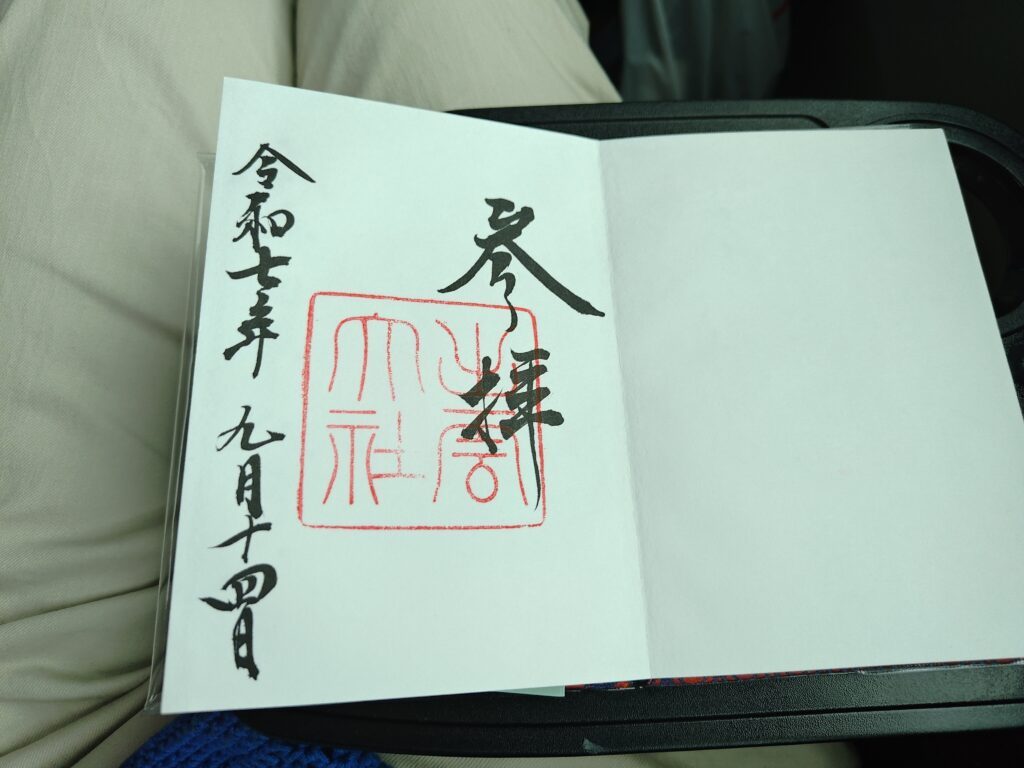 参拝
出雲大社
令和七年九月十四日